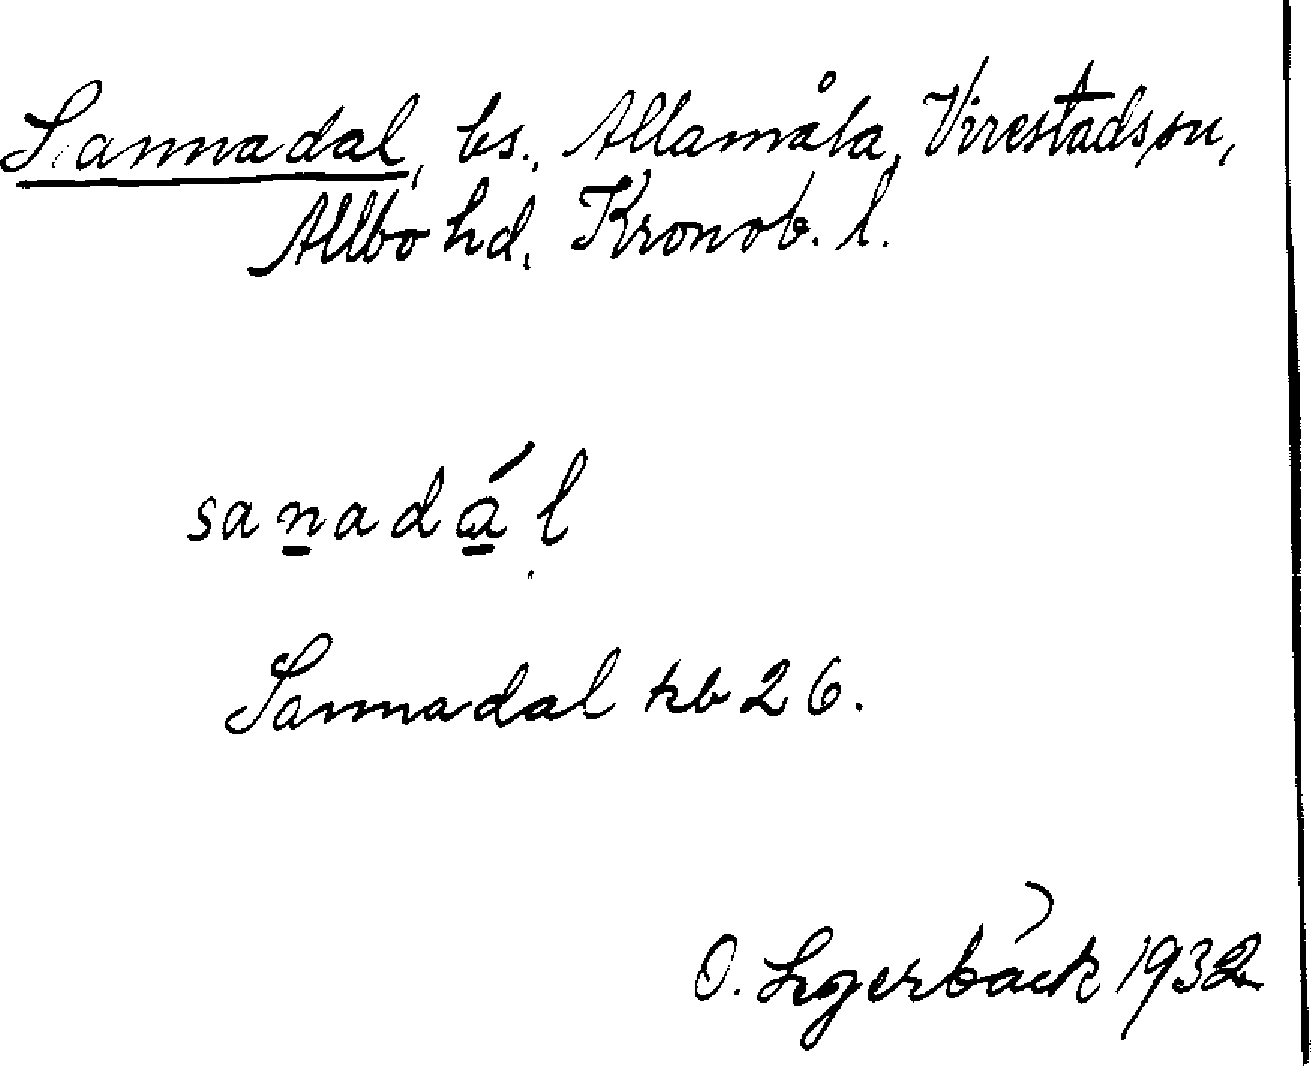 Sannadal, bs., Allamåla, Virestads sn,
Allbo hd, Kronob. l.
sanadál
Sannadal kb 26.
O. Lgerbäck 1932